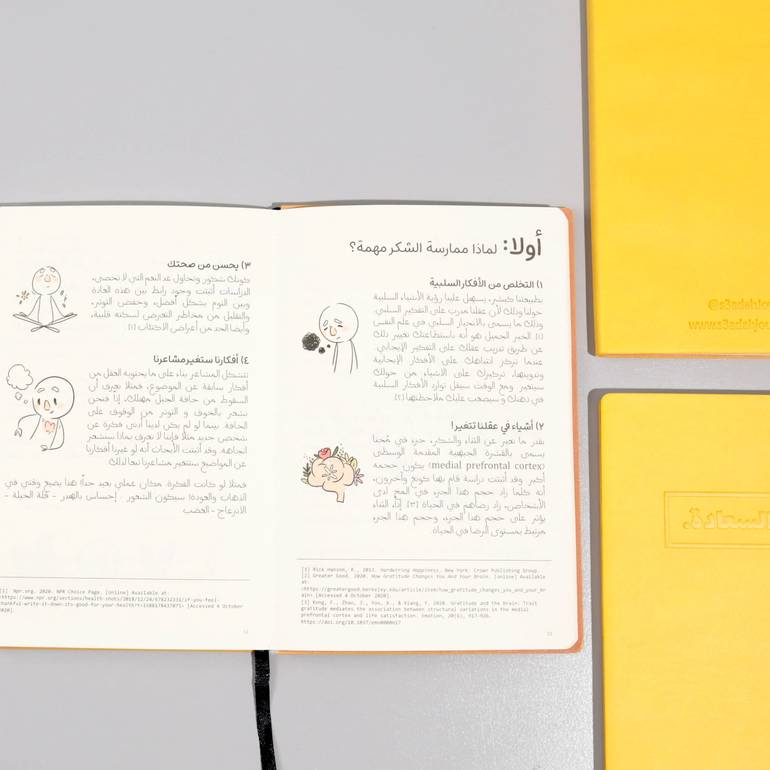 أولا: لماذا ممارسة الشكر مهمة؟
١) التخلص من الأفكار السلبية
بطبيعتنا كبشر، يسهل علينا رؤية الأشياء السلبية
حولنا وذلك لأن عقلنا مدرب على التفكير السلبي.
وذلك ما يسمى بالانحياز السلبي في علم النفس
[١]. الخبر الجميل هو أنه باستطاعتك تغيير ذلك
عن طريق تدريب عقلك على التفكير الإيجابي.
عندما تركز انتباهك على الأفكار الإيجابية
وتدوينها، تركيزك على الأشياء من حولك
سيتغير. ومع الوقت سيقل توارد الأفكار السلبية
في ذهنك وسيصعب عليك ملاحظتها [٢].
٢) أشياء في عقلنا تتغير!
بقدر ما نعبر عن الثناء والشكر، جزء في مُخنا
يسمى بالقشرة الجبهية المقدمة الوسطى
(medial prefrontal cortex) يكون حجمه
أكبر. وقد أثبتت دراسة قام بها كونغ وآخرون،
أنه كلما زاد حجم هذا الجزء في المخ لدى
الأشخاص، زاد رضاهم في الحياة [٣]. إذًا، الثناء
يؤثر على حجم هذا الجزء، وحجم هذا الجزء
مرتبط بمستوى الرضا في الحياة.
[1] Rick Hanson, R., 2013. Hardwiring Happiness. New York: Crown Publishing Group.
[2] Greater Good. 2020. How Gratitude Changes You And Your Brain. [online] Available
at:
<https://greatergood.berkeley.edu/article/item/how_gratitude_changes_you_and_your_br
ain> [Accessed 4 October 2020].
[3] Kong, F., Zhao, J., You, X., & Xiang, Y. 2020. Gratitude and the brain: Trait
gratitude mediates the association between structural variations in the medial
prefrontal cortex and life satisfaction. Emotion, 20(6), 917-926.
٣) يحسن من صحتك
كونك شكور وتحاول عد النعم التي لا تحصى،
الدراسات أثبتت وجود رابط بين هذه العادة
وبين النوم بشكل أفضل، وخفض التوتر،
والتقليل من مخاطر التعرض لسكتة قلبية،
وأيضا الحد من أعراض الاكتئاب [١].
٤) أفكارنا ستغير مشاعرنا
تتشكل المشاعر بناء على ما يحتويه العقل من
أفكار سابقة عن الموضوع، فمثلا نعرف أن
السقوط من حافة الجبل مهلك، إذًا فنحن
نشعر بالخوف و التوتر من الوقوف على
الحافة. بينما لو لم يكن لدينا أدنى فكرة عن
شخص جديد مثلا فإننا لا نعرف بماذا سنشعر
اتجاهه. وقد أثبتت الأبحاث أنه لو غيرنا أفكارنا
عن المواضيع ستتغير مشاعرنا تبعا لذلك.
فمثلا لو كانت الفكرة: مكان عملي بعيد جدًا! هذا يضيع وقتي في
الذهاب والعودة! سيكون الشعور : إحساس بالهدر - قلة الحيلة -
الانزعاج - الغضب.
[1] Npr.org. 2020. NPR Choice Page. [online] Available at:
[Accessed 4 October
2020].
@s3adahjou
www.s3adahjou
السعادة.